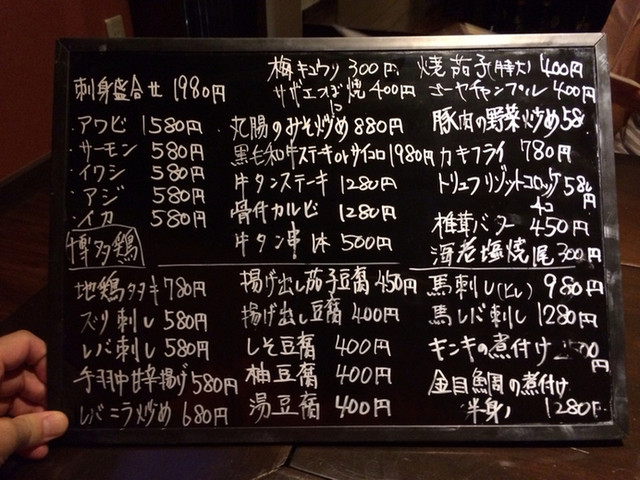 刺身盛合せ 1980円
・アワビ 1580円
・サーモン 580円
・イワシ 580円
・アジ 580円
・イカ 580円
博多鶏
地鶏タタキ 780円
ズリ刺し 580円
レバ刺し 580円
手羽中甘辛揚げ 580円
レバニラ炒め 680円
梅キュウリ 300円
サザエつぼ焼 400円
1コ
丸腸のみそ炒め 880円
黒毛和牛ステーキorサイコロ 1980円
牛タンステーキ 1280円
骨付カルビ 1280円
牛タン串 1本 500円
揚げ出し茄子豆腐 450円
揚げ出し豆腐 400円
しそ豆腐 400円
柚豆腐 400円
湯豆腐 400円
焼茄子(特大) 400円
ゴーヤチャンプル 400円
豚肉の野菜炒め 58
カキフライ 780円
トリュフリゾットコロッケ 580円
4コ
椎茸バター 450円
海老塩焼 尾 300円
馬刺し(ヒレ) 980円
馬レバ刺し 1280円
キンキの煮付け 円
金目鯛の煮付け
半身 1280円